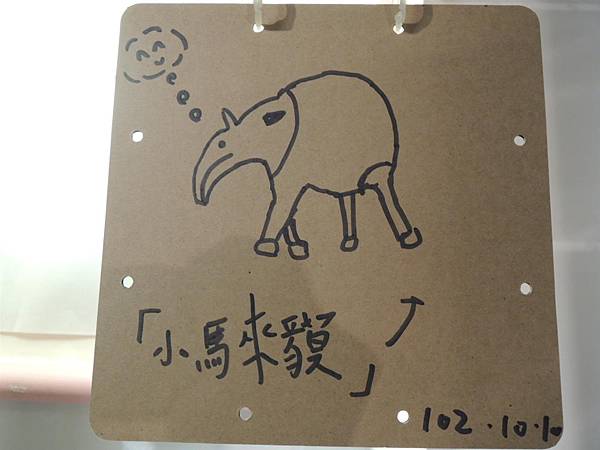 「小馬來貘」
102.10.10